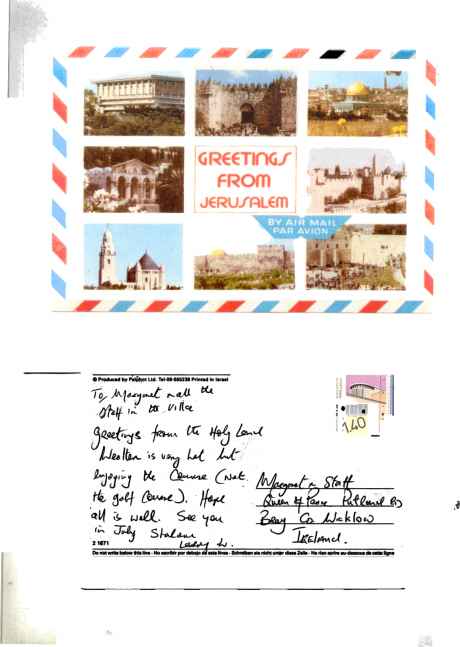 GREETINGS
FROM
JERUSALEM
BY AIR MAIL
PAR AVION
© Produced by Palphot Ltd. Tel-09-555238 Printed in Israel
To Margaret & all the
Staff in the Villa
Greetings from the Holy Land
Weather is very hot but
enjoying the Course (not
the golf Course). Hope
all is well. See you
in July Shalom
Larry
2 1671
140
Margaret & Staff
Queen of Peace Putland Rd
Bray Co Wicklow
IRELAND.
Do not write below this line - No escribir por debajo de esta linea - Schreiben sie nicht unter diese Zeile - Ne rien ecrire au-dessous de cette ligne